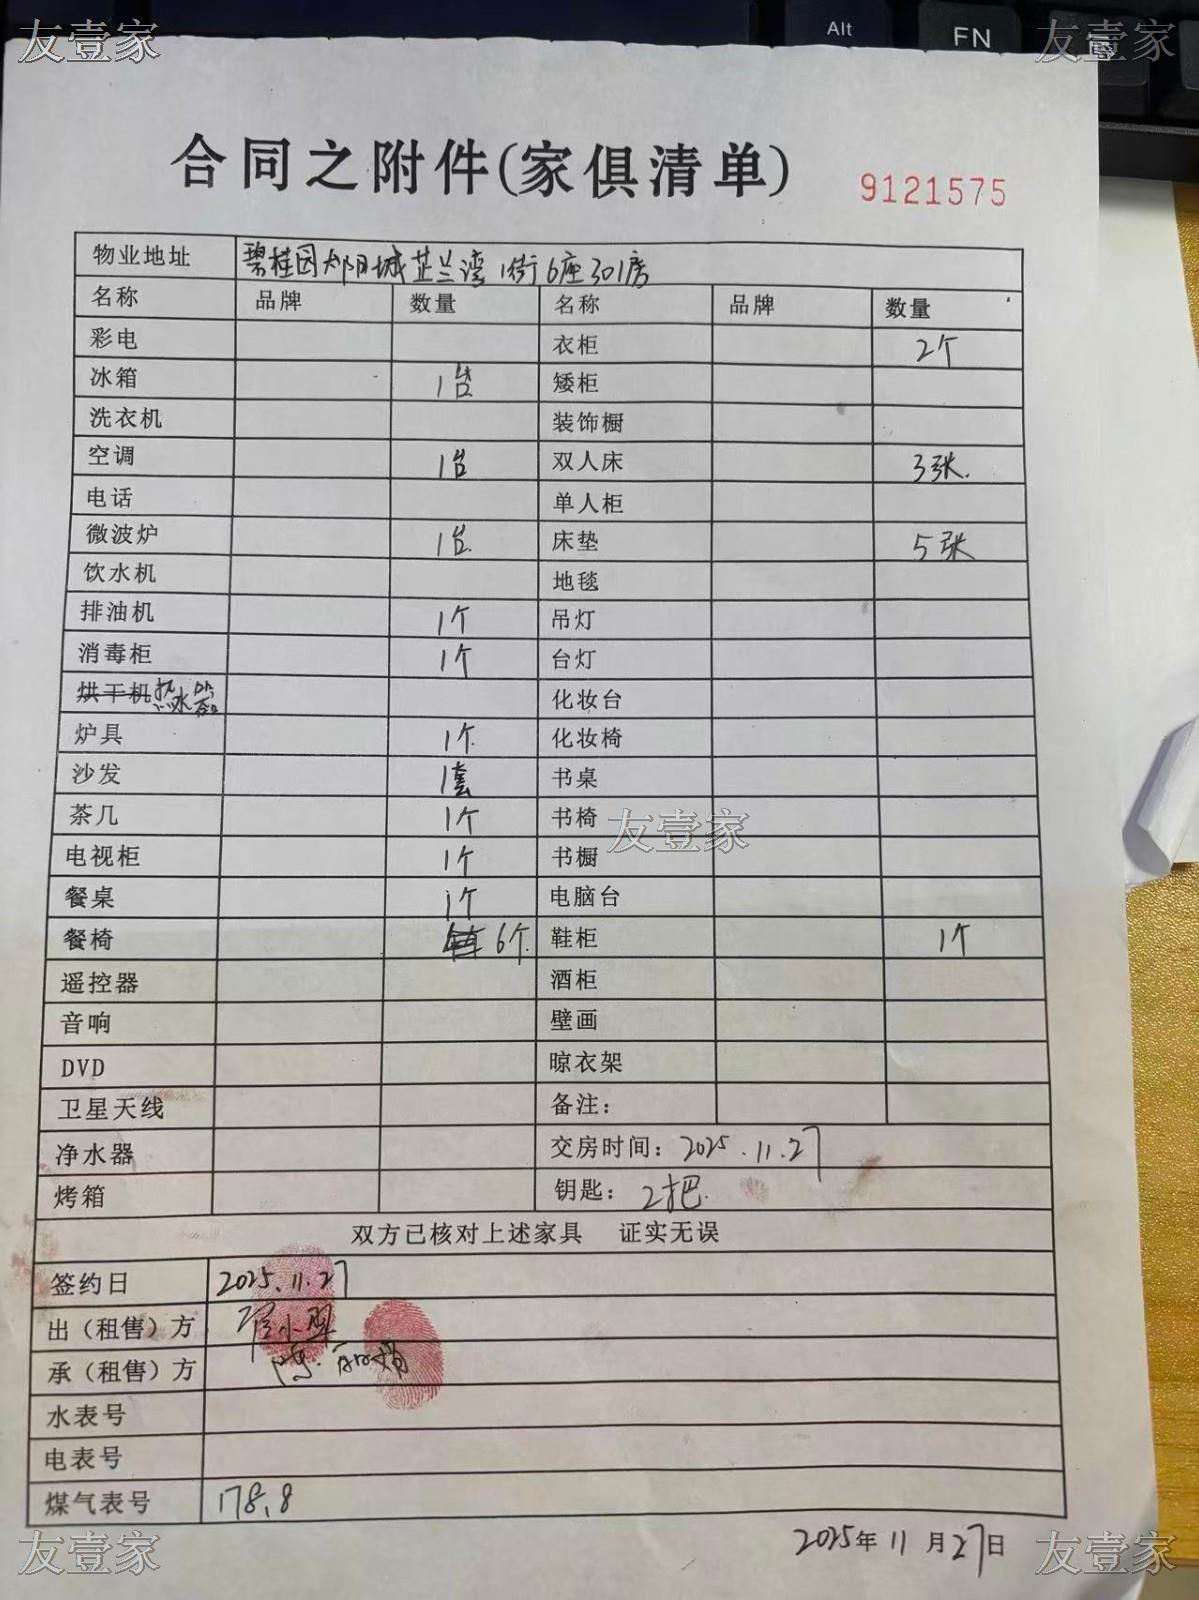 Alt
FN
友壹家
友壹家
合同之附件(家俱清单)
9121575
物业地址 碧桂园太阳城芷兰湾1街6座301房
名称 品牌 数量 名称 品牌 数量
彩电 衣柜 2个
冰箱 1台 矮柜
洗衣机 装饰橱
空调 1台 双人床 3张.
电话 单人柜
微波炉 1台. 床垫 5张
饮水机 地毯
排油机 1个 吊灯
消毒柜 1个 台灯
烘干机 热水器 化妆台
炉具 1个. 化妆椅
沙发 1套 书桌
茶几 1个 书椅
友壹家
电视柜 1个 书橱
餐桌 1个 电脑台
餐椅 6个. 鞋柜 1个
遥控器 酒柜
音响 壁画
DVD 晾衣架
卫星天线 备注：
净水器 交房时间：2025.11.27
烤箱 钥匙：2把.
双方已核对上述家具 证实无误
签约日 2025.11.27
出（租售）方
承（租售）方
水表号
电表号
煤气表号 178.8
2025年11月27日
友壹家
友壹家